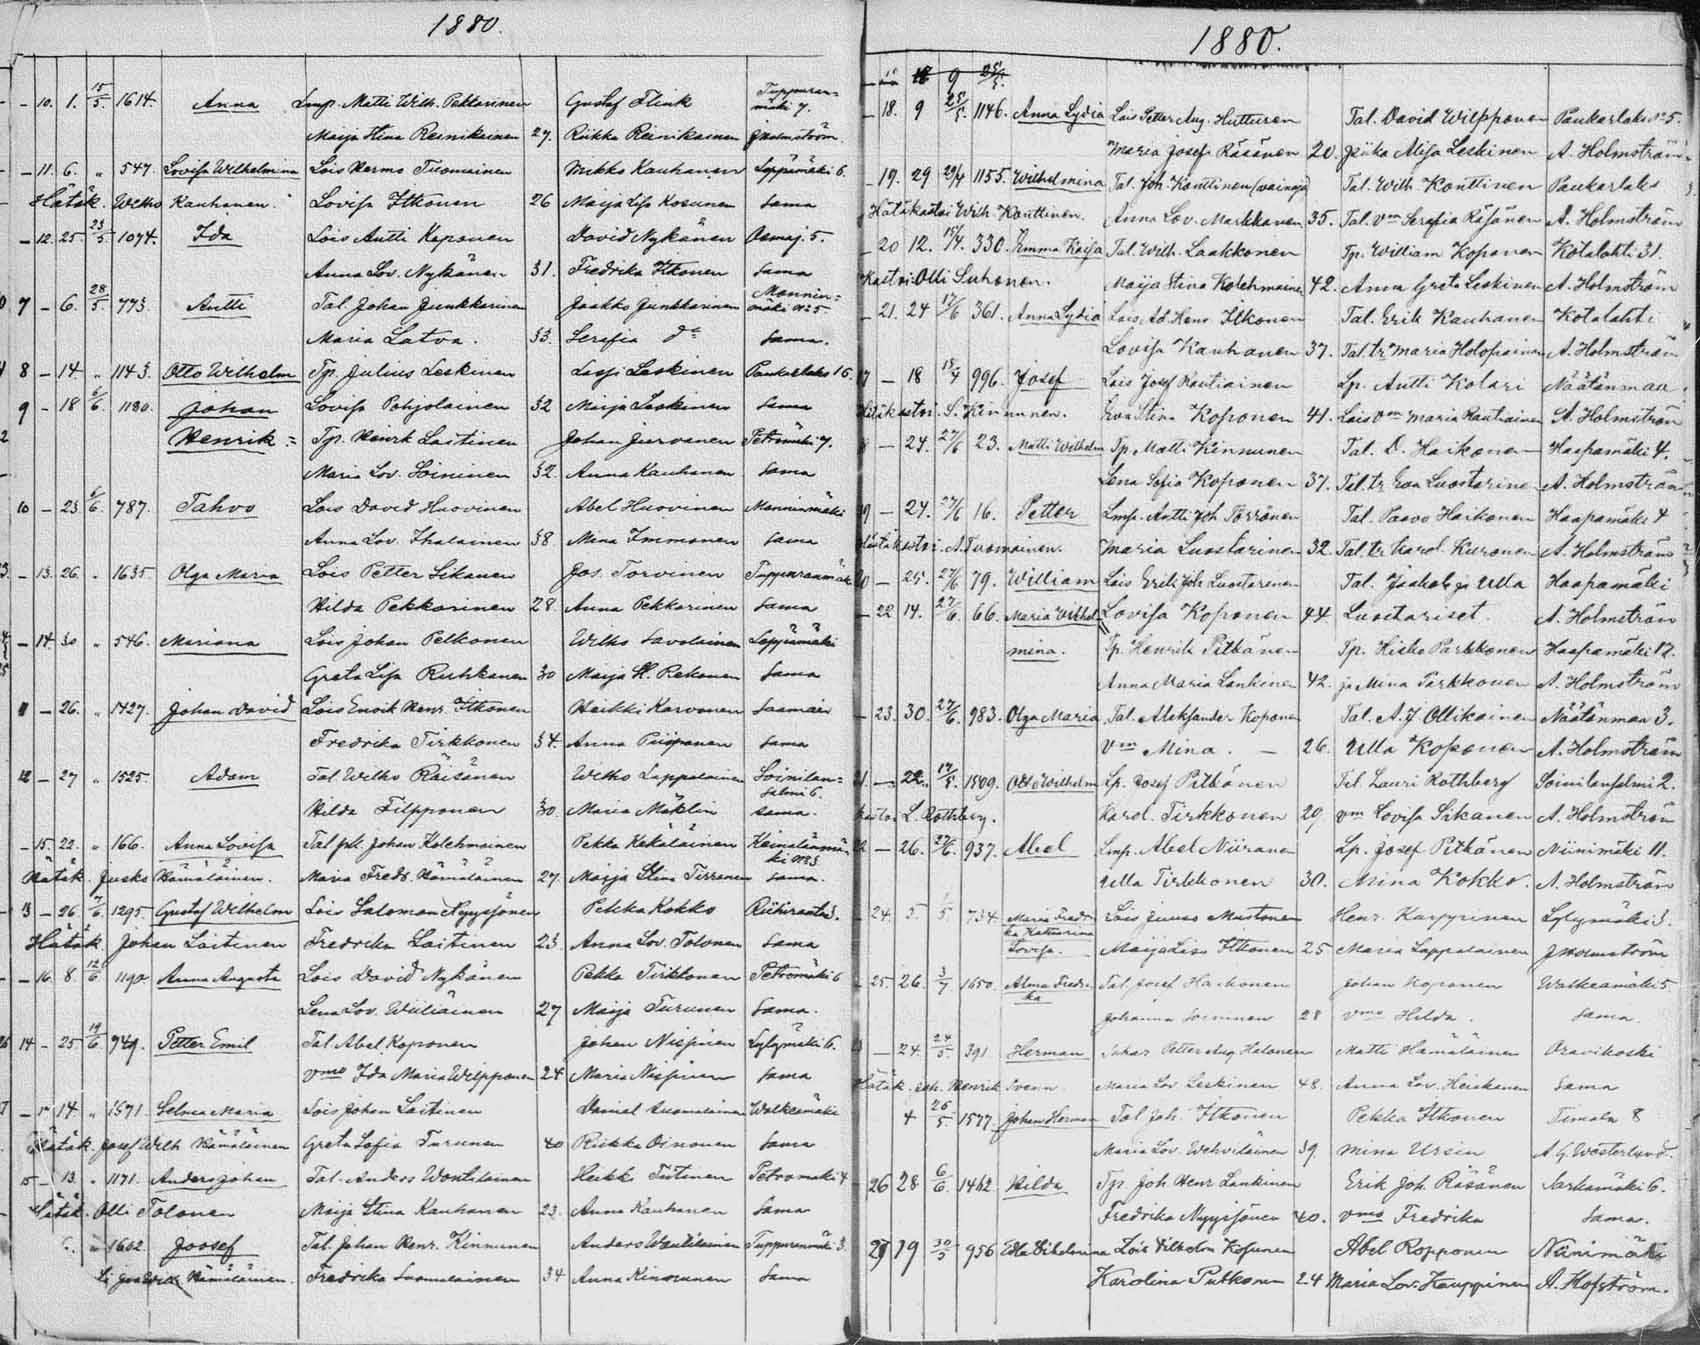 1880.
- 10. 1. 15/5. 1614. Anna Lmp. Matti Wilh. Pekkarinen Gustaf Flink Tuppuran=
mäki 7.
Maija Stina Reinikainen 27. Riikka Reinikainen J. Holmström
- 11. 6. " 547. Lovisa Wilhelmina Lois Hermo Tuomainen Mikko Kauhanen Leppämäki 6.
Hätäk. Wilho Kauhanen. Lovisa Itkonen 26 Maija Lis. Kosunen Sama
- 12. 25. 23/5 1074. Ida Lois Antti Koponen David Nykänen Osmaj. 5.
Anna Lov. Nykänen 31. Fredrika Itkonen Sama
7 - 6. 28/5. 773. Antti Tal. Johan Junkkarinen Jaakko Junkkarinen Mannin=
mäki No 5
Maria Latva. 33. Serafia do Sama.
8 - 14. " 1143. Otto Wilhelm Tp. Julius Leskinen Lassi Leskinen Paukarlaks 16.
9 - 18 6/6. 1180. Johan Lovisa Pohjolainen 32 Maija Leskinen Sama
Henrik = Tp. Henrik Laitinen Johan Juvonen Petromäki 7.
Maria Lov. Soininen 32. Anna Kauhanen Sama
10 - 23. 6/6. 787. Tahvo Lois David Huovinen Abel Huovinen Manninmäki
Anna Lov. Ihalainen 38 Mina Immonen Sama
- 13. 26. " 1635 Olga Maria Lois Petter Sikanen Jos. Torvinen Tuppuranmäki
Hilda Pekkarinen 28. Anna Pekkarinen Sama
- 14. 30 " 546. Mariana Lois Johan Pelkonen Wilho Savolainen Leppämäki
Greta Lisa Ruhkanen 30 Maija St. Rekonen Sama
11 - 26. " 1427. Johan David Lois Enok Henr. Itkonen Heikki Karvonen Saamais
Fredrika Tirkkonen 34. Anna Piisponen Sama
12 - 27 " 1525. Adam Tal. Wilho Räisänen Wilho Lappalainen Soinilan=
salmi 6.
Hilda Filpponen 30. Maria Mäklin Sama.
- 15. 22. " 166. Anna Lovisa Tal. pk. Johan Kolehmainen Pekka Kekäläinen Koinulanmä=
ki No 3
Hätäk. Juska Hämäläinen. Maria Fredr. Hämäläinen 27. Maija Stina Tirronen Sama.
13 - 26 7/6. 1295. Gustaf Wilhelm Lois Salomon Nyyssönen Pekka Kokko Riihiranta 3.
Hätäk. Johan Laitinen Fredrika Laitinen 23. Anna Lov. Tolonen Sama
- 16. 8. 12/6 1190. Anna Augusta Lois David Nykänen Pekka Tirkkonen Petromäki 6
Lena Lov. Wäliäinen 27 Maija Turunen Sama.
14 - 25 19/6 749. Petter Emil Tal. Abel Koponen Johan Nissinen Lylymäki 6.
vmo Ida Maria Wilpponen 24 Maria Nissinen Sama
14 " 1571. Selma Maria Lois Johan Laitinen Daniel Suomalainen Walkeamäki
Hätäk. Josef Wilh. Hämäläinen Greta Sofia Turunen 40 Riikka Oinonen Sama
15 - 13. " 1171. Anders Johan Tal. Anders Wantilainen Heikki Tiitinen Petromäki 4
Hätäk. Olli Tolonen Maija Stina Kauhanen 23. Anna Kauhanen Sama
6. " 1602. Joosef Tal. Johan Henr. Kinnunen Anders Wantilainen Tuppuranmäki 3.
Hämäläinen. Fredrika Suomalainen 34 Anna Kinnunen Sama
1880.
9 25/5.
- 18. 9 25/5. 1146. Anna Lydia Lois Petter Aug. Huttunen Tal. David Wilpponen Paukarlaks No 5.
Maria Josefi Räsänen 20. Priika Alisa Leskinen A. Holmström
- 19. 29 29/4 1155. Wilhelmina Tal. Joh. Konttinen (vainaja) Tal. Wilh. Konttinen Paukarlaks
Hätäkastoi Wilh. Konttinen. Anna Lov. Markkanen 35. Tal. vm Serafia Räsänen A. Holmström
- 20 12. 15/4. 330. Emma Kaisa Tal. Wilh. Laakkonen Tp. William Koponen Kotalahti 31.
Kastoi Olli Suhonen. Maija Stina Kolehmainen 42. Anna Greta Leskinen A. Holmström
- 21. 24 17/6 361. Anna Lydia Lois. Ad. Henr. Itkonen Tal. Erik Kauhanen Kotalahti
Lovisa Kauhanen 37. Tal. tr Maria Holopainen A. Holmström
17 - 18 18/4 996. Josef Lois Josef Rautiainen Lp. Antti Kolari Näätänmaa
Hätäkastoi S. Kinnunen. Eva Stina Koponen 41. Lois vm Maria Rautiainen A. Holmström
- 24. 27/6 23. Matti Wilhelm Tp. Matti Kinnunen Tal. D. Haikonen Haapamäki 4.
Lena Sofia Koponen 37. Tal. tr Eva Luostarinen A. Holmström
19 - 24. 27/6 16. Petter Lmp. Antti Joh. Törrönen Tal. Paavo Haikonen Haapamäki 4
Hätäkastoi A. Tuomainen. Maria Luostarinen 32. Tal. tr Karol. Kuronen A. Holmström
20 - 25. 27/6 79. William Lois Erik Joh. Luostarinen Tal. Jaakob ja Ulla Haapamäki
- 22 14. 27/6. 66. Maria Wilhel= Lovisa Koponen 44 Luostariset. A. Holmström
mina. Tp. Henrik Pitkänen Tp. Hisko Parkkonen Haapamäki 12.
Anna Maria Lankinen 42. ja Mina Parkkonen A. Holmström
- 23. 30. 27/6. 983. Olga Maria Tal. Aleksander Koponen Tal. A. J Ollikainen Näätänmaa 3.
vm Mina. - 26. Ulla Koponen A. Holmström
21 - 22. 17/5. 1509. Otto Wilhelm Lp. Josef Pitkänen Tal. Lauri Rothberg Soinilansalmi 2.
Kastoi L. Rothberg. Karol. Tirkkonen 29. vm Lovisa Sikanen A. Holmström
22 - 26. 27/6. 937. Abel Lmp. Abel Niiranen Lp. Josef Pitkänen Niinimäki 11.
Ulla Tirkkonen 30. Mina Kokko. A. Holmström
- 24. 5. 1/5 734. Maria Fredri=
ka Katharina Lois Juuso Mustonen Henr. Karppinen Lylymäki 3.
Lovisa. Maija Lisa Itkonen 25 Maria Lappalainen J. Holmström
25. 26. 3/7 1650. Alma Fredri=
ka Tal. Josef Haikonen Johan Koponen Walkeamäki 5
Johanna Soininen 28 vmo Hilda. Sama.
- 24. 24/5. 391. Herman Petter Aug. Halonen Matti Hämäläinen Oravikoski
Hätäk. Henrik Maria Lov. Leskinen 48. Anna Lov. Heiskanen Sama
4 26/5. 1577. Johan Herman Tal. Joh. Itkonen Pekka Itkonen Timola 8
Maria Lov. Wehviläinen 39. Mina Ursin A. G. Westerlund.
26 28 6/6. 1462. Hilda Tp. Joh. Henr. Lankinen Erik Joh. Räsänen Sarkamäki 6.
Fredrika Nyyssönen 40. vmo Fredrika Sama.
27 19 30/5 956 Edla Vilhelmina Lois Vilhelm Kosunen Abel Ropponen Niinimäki
Karolina Putkonen 24 Maria Lov. Kauppinen A. Hofström.